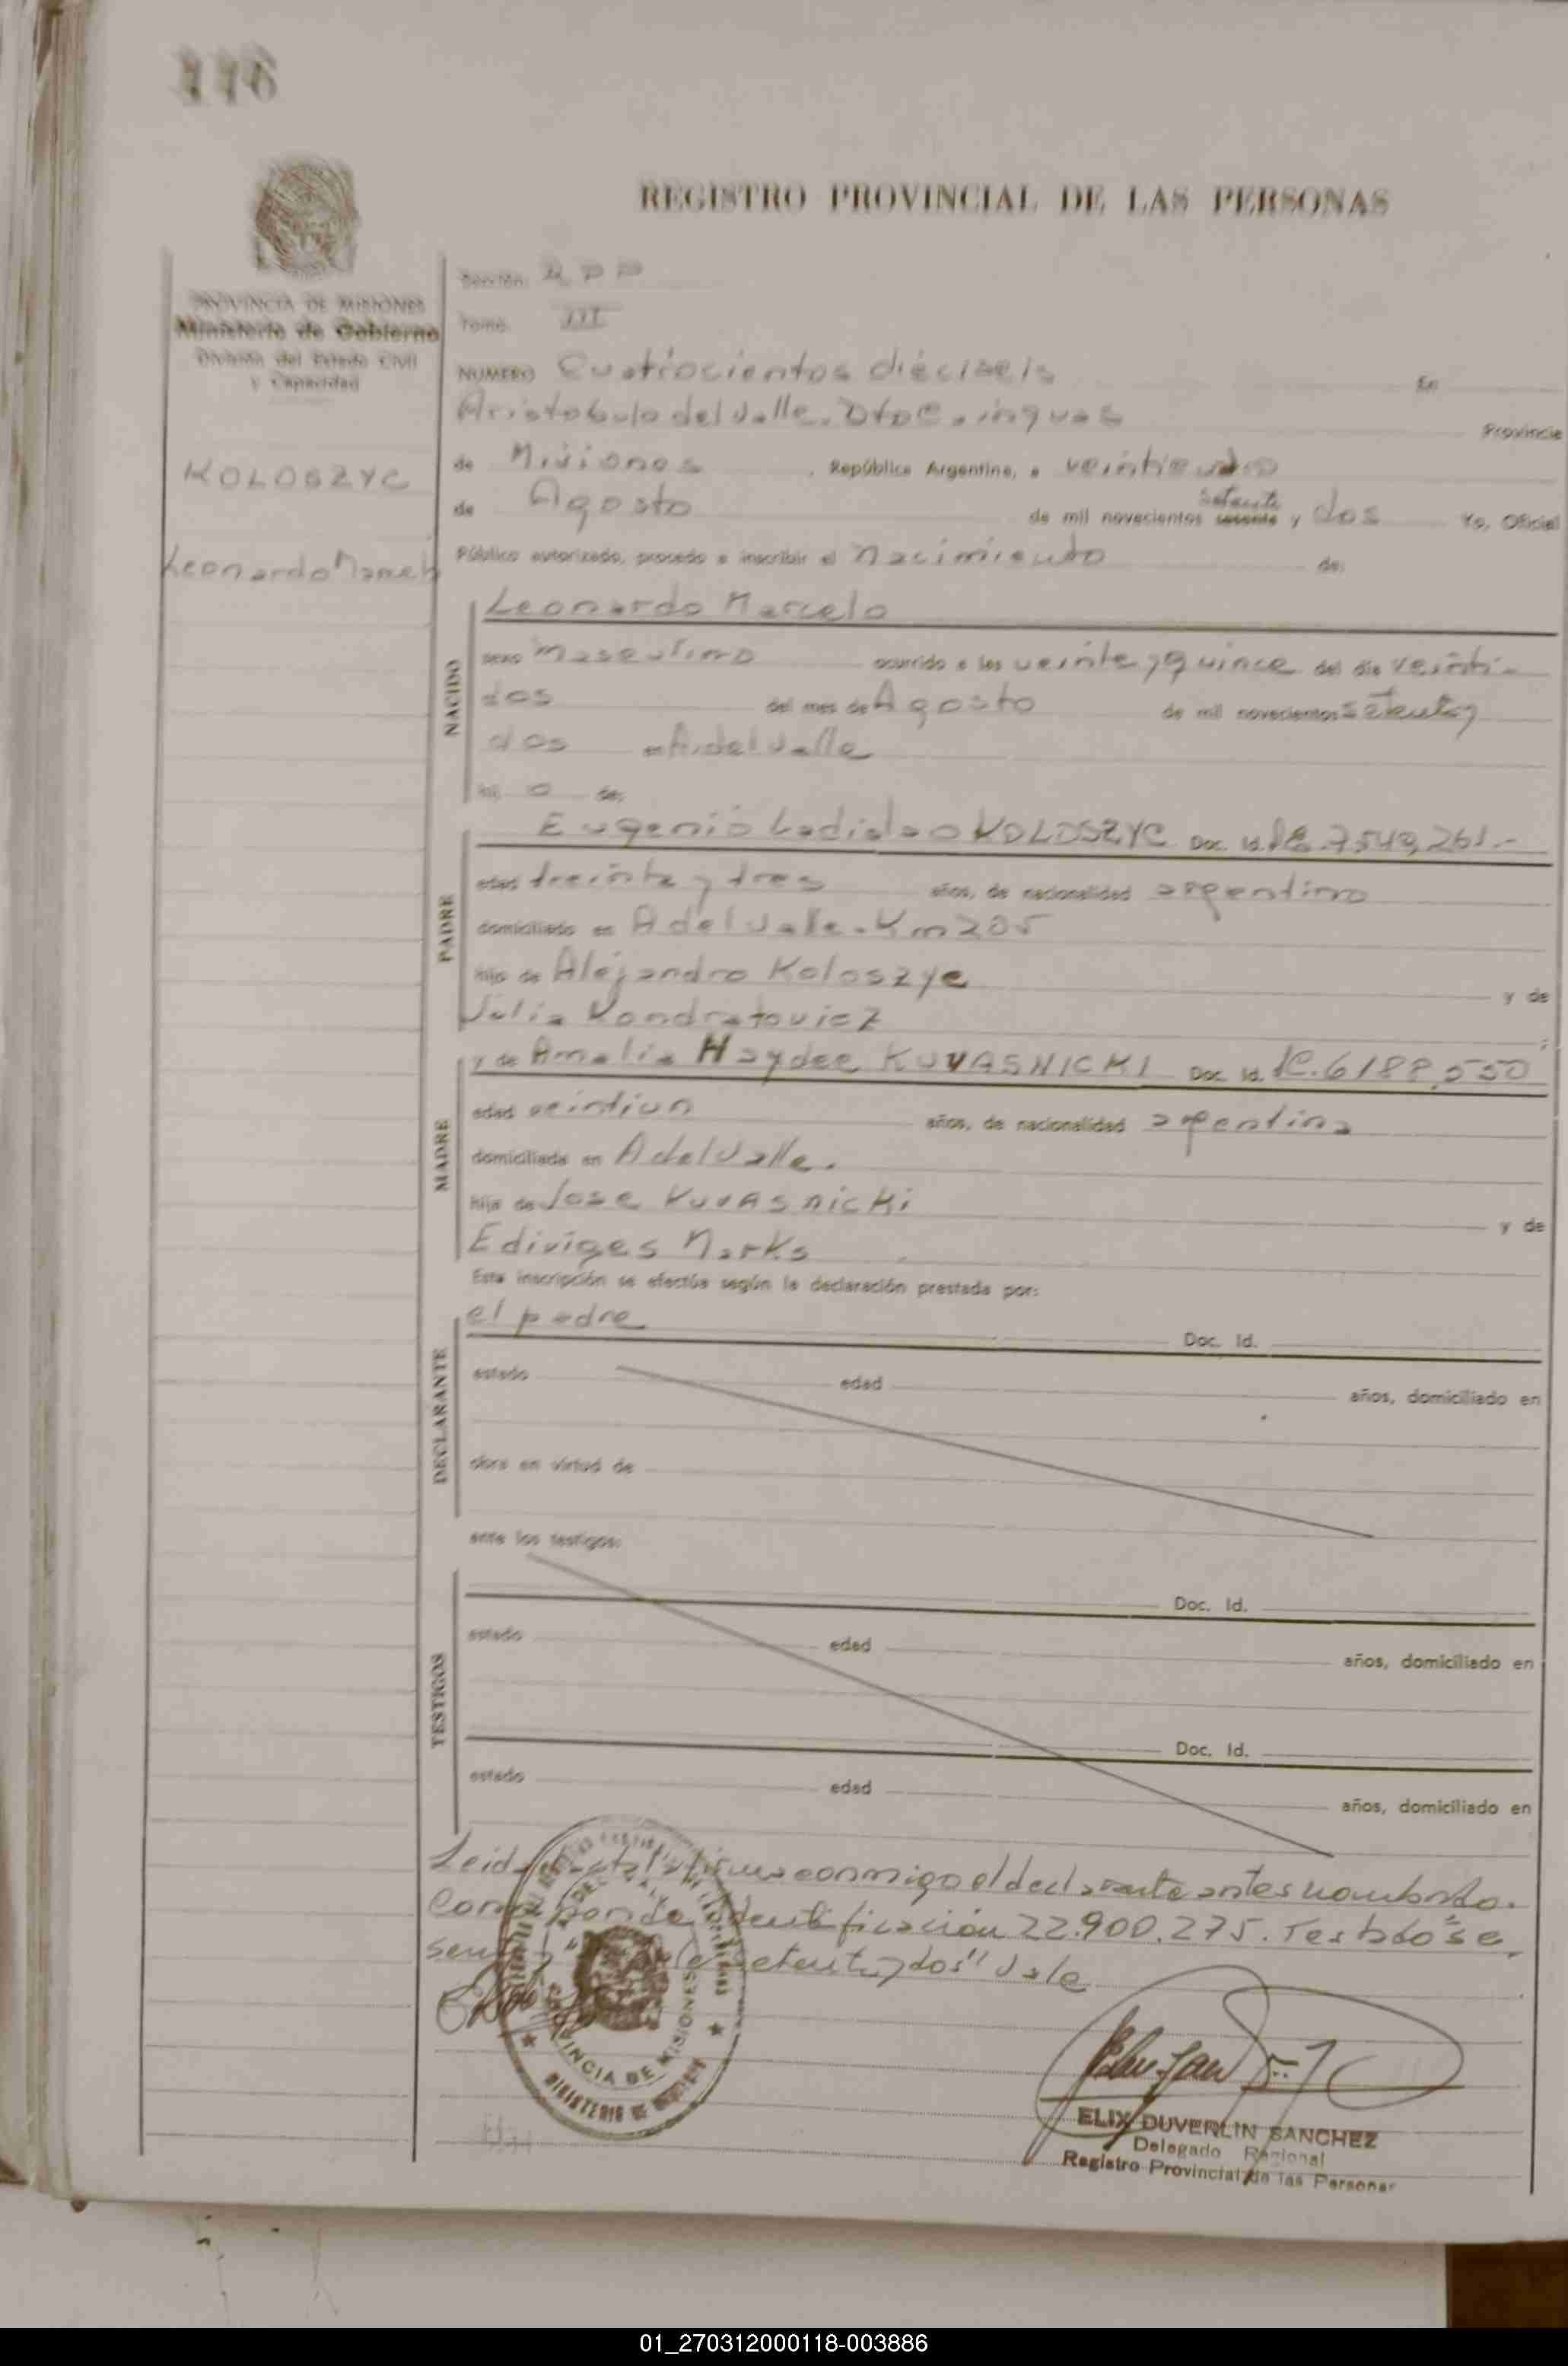 116
REGISTRO PROVINCIAL DE LAS PERSONAS
PROVINCIA DE MISIONES
Ministerio de Gobierno
División del Estado Civil
y Capacidad
KOLOSZYC
Leonardo Marcelo
Sección:
Tomo: III
NUMERO Cuatrocientos diéciseis En
Aristobulo del Valle. Provincia
de Misiones , República Argentina, a
de Agosto de mil novecientos sesenta setenta y dos Yo, Oficial
Público autorizado, procedo a inscribir el nacimiento de:
NACIDO
Leonardo Marcelo
sexo masculino ocurrido a las veinte y quince del día veinti-
dos del mes de Agosto de mil novecientos setenta y
dos en A. del Valle
hij o de:
PADRE
Eugenio Ladislao KOLOSZYC Doc. Id. 7549,261.-
edad treinta y tres años, de nacionalidad argentino
domiciliado en A del Valle - Km 205
hijo de Alejandro Koloszyc y de
Julia Kondratoviez
MADRE
y de Amelia Haydee KUVASNICKI Doc. Id. 6188,550
edad veintiun años, de nacionalidad argentina
domiciliada en A del Valle.
hija de Jose KUVASNICKI y de
Ediviges Marks
Esta inscripción se efectúa según la declaración prestada por:
DECLARANTE
el padre Doc. Id.
estado edad años, domiciliado en
obra en virtud de
ante los testigos:
TESTIGOS
Doc. Id.
estado edad años, domiciliado en
Doc. Id.
estado edad años, domiciliado en
Leida conmigo el declarante antes nombrado.
identificación 22.900.275. Testado "se
setenta y dos" Vale
PROVINCIA DE MISIONES
MINISTERIO DE
ELIX DUVERLIN SANCHEZ
Delegado Regional
Registro Provincial de las Personas
01_270312000118-003886